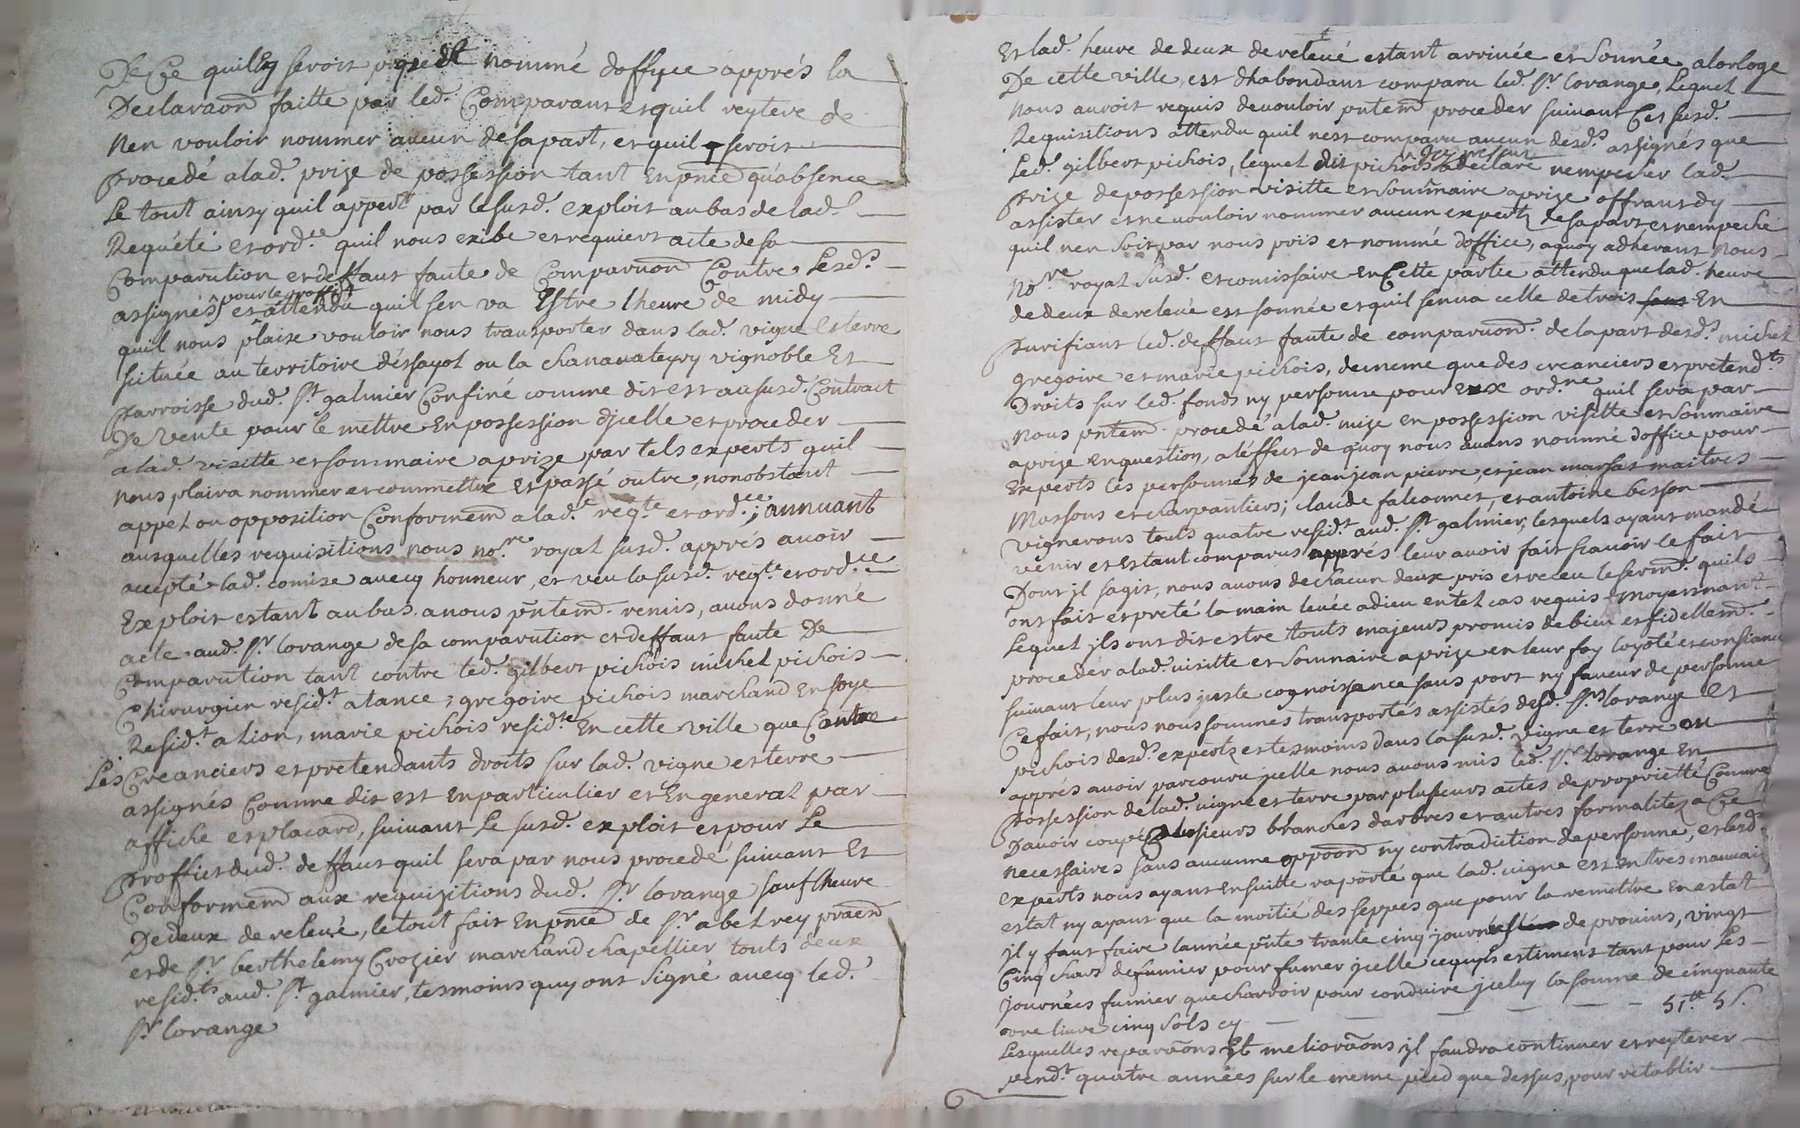 De Ce quil En seroit pris et nommé doffyce apprés la
Declaraon faitte par led. Comparant et quil reytere de
Nen vouloir nommer aucun de sa part, et quil seroit
procedé a lad. prize de possession tant En pnce qu'absence
Le tout ainsy quil appert par le susd. exploit au bas de lad.
Requeté et ord.ce quil nous exibe et requiert acte de sa
Comparution et deffaut faute de Comparuon Contre Lesd.s
assignés pour le proffit et attendu quil sen va Estre lheure de midy
quil nous plaise vouloir nous transporter dans lad. vigne et terre
situtée au territoire dessayol ou la chanauateyry vignoble Et
parroisse dud. St galmier Confiné comme dit est au susd. Contract
De vente pour le mettre En possession dycelle et proceder
a lad. visitte et sommaire aprize par tels experts quil
nous plaira nommer et commettre Et passé outre, nonobstant
appel ou opposition Conformem a lad.e reqte et ord.ce; annuant
ausquelles requisitions nous no.re royal susd. apprés avoir
accepté lad. comise avecq honneur, et veu la susd. reqte et ord.ce
Exploit estant au bas, a nous pntem. remis, avons donné
acte aud. Sr lorange de sa comparution et deffaut faute De
Comparution tant contre led. gilbert pichois michel pichois
Chirurgien resid.t a tance; gregoire pichois marchand En soye
Resid.t a Lion, marie pichois resid.te En cette ville que Contre
Les Creanciers et pretendants droits sur lad. vigne et terre
assignés Comme dit est En particulier et En general par
affiche et placard, suivant Le susd. exploit et pour Le
proffict dud. deffaut quil sera par nous procedé suivant Et
Conformem aux requisitions dud. Sr lorange sauf lheure
De deux de relevé, le tout fait En pnce de Sr abel rey praen
et de Sr berthelemy Crozier marchand chapellier touts deux
resid.ts aud. St galmier, tesmoins quy ont signé avecq led.
Sr lorange
Et lad. heure de deux de relevé estant arrivée et sonnée a lorloge
De cette ville, est dhabondant comparu led. Sr lorange, Lequel
Nous auroit requis de vouloir pntem proceder suivant Ces susd.
Requisitions attendu quil nest comparu aucun desd.s assignés que
Led. gilbert pichois, lequel pichois a declaré nempecher lad.
prize de possession visitte et sommaire aprize offrant dy
assister et ne vouloir nommer aucun expert de sa part et nempeche
quil nen soit par nous pris et nommé doffice, a quoy adherant Nous
No.re royal susd. et comissaire En Cette partie attendu que lad. heure
de deux de relevé est sonnée et quil sen va celle de trois En
purifiant led. deffaut faute de comparuon. de la part desd.s michel
gregoire et marie pichois, de meme que des creanciers et pretend.ts
Droits sur led. fonds ny personne pour Eux ord.ne quil sera par
Nous pntem. procedé a lad. mize en possession visitte et sommaire
aprize en question, a leffect de quoy nous avons nommé doffice pour
Experts les personnes de jean jean pierre, et jean marsas maitres
Massons et charpantiers; claude falconnet, et antoine besson
vignerons touts quatre resid.t aud. St galmier; lesquels ayant mandé
venir et Estant comparus apprés leur avoir fait scavoir le fait
Dont il sagit, nous avons de chacun deux pris et receu le serm.t quils
ont fait et preté la main levée a dieu en tel cas requis moyennant
Lequel jls ont dit estre touts majeurs promis de bien et fidellem.
proceder a lad. visitte et sommaire aprize en leur foy loyoté et consiance
suivant leur plus juste cognoissance sans port ny faveur de personne
Ce fait, nous nous sommes transportés assistés desd. Srs lorange Et
pichois desd.s experts et tesmoins dans la susd. vigne et terre ou
apprés avoir parcouru jcelle nous avons mis led. Sr lorange En
possession de lad. vigne et terre par plusieurs actes de proprietté Comme
Davoir coupé plusieurs branches darbres et autres formalitez a Ce
necessaires sans aucunne oppoon ny contradiction de personne, et lesd.
experts nous ayant Ensuitte raporté que lad. vigne est en tres mauvais
estat ny ayant que la moitié des seppes que pour la remettre En estat
jl y faut faire lannée pnte trante cinq journées de provins, vingt
Cinq chars de fumier pour fumer jcelle ce quyls estiment tant pour Les
journées fumier que charroir pour conduire jceluy la somme de cinquante
une livre cinq sols cy — — — — 51tt 5s.
Lesquelles reparaons Et melioraons jl faudra continuer et reyterer
pend.t quatre années sur le meme pied que dessus, pour retablir